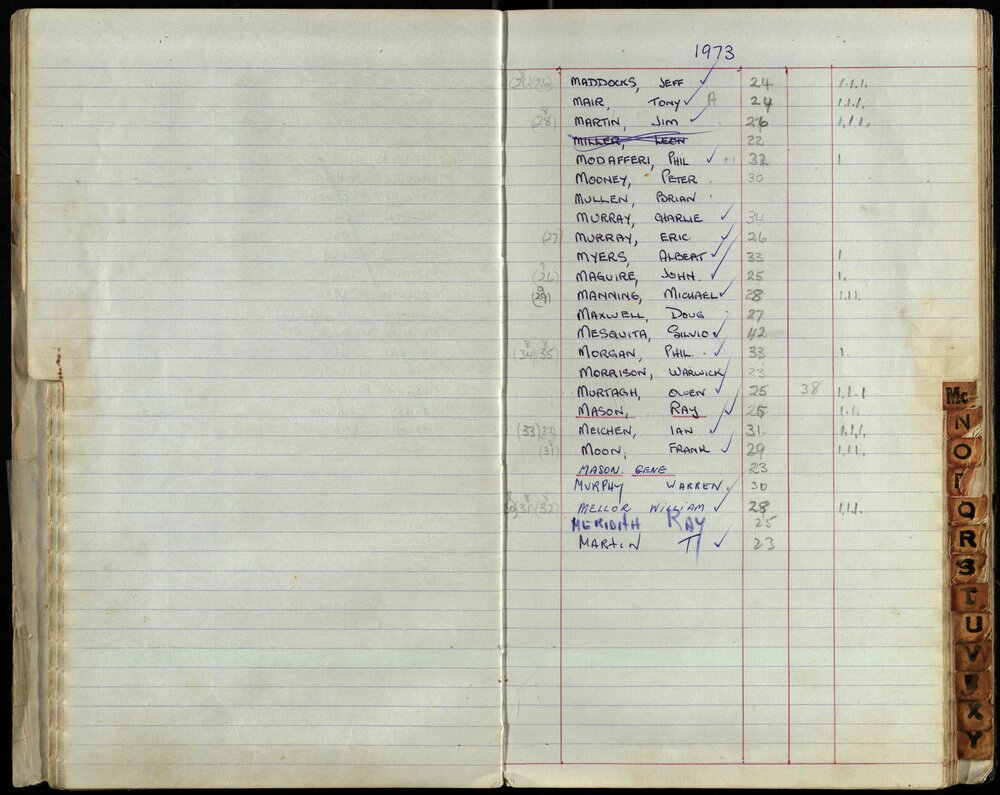 1973
(26)(26) MADDOCKS, JEFF 24 1.1.1.
MAIR, TONY ✓ A 24 1.1.1.
(28) MARTIN, JIM ✓ 26 1.1.1.
MILLER, LEON 22
MODAFFERI, PHIL ✓ +1 32 1
MOONEY, PETER . 30
MULLEN, BRIAN
MURRAY, CHARLIE ✓ 34
(27) MURRAY, ERIC ✓ 26
MYERS, ALBERT ✓ 33 1
(26) MAGUIRE, JOHN. ✓ 25 1.
(29) MANNING, MICHAEL ✓ 28 1.1.1.
MAXWELL, DOUG 27
MESQUITA, SILVIO ✓ 42
(34)(35) MORGAN, PHIL. ✓ 33 1.
MORRISON, WARWICK 23
MURTAGH, OWEN ✓ 25 38 1.1.1
MASON, RAY ✓ 25 1.1.
(33)(32) MEICHEN, IAN ✓ 31. 1.1.1.
(31) MOON, FRANK ✓ 29 1.1.1.
MASON. GENE 23
MURPHY WARREN. 30
31)(32) MELLOR WILLIAM ✓ 28 1.1.1.
MERIDITH RAY 25
MARTIN T ✓ 23
Mc
N
O
Q
R
S
T
U
V
X
Y